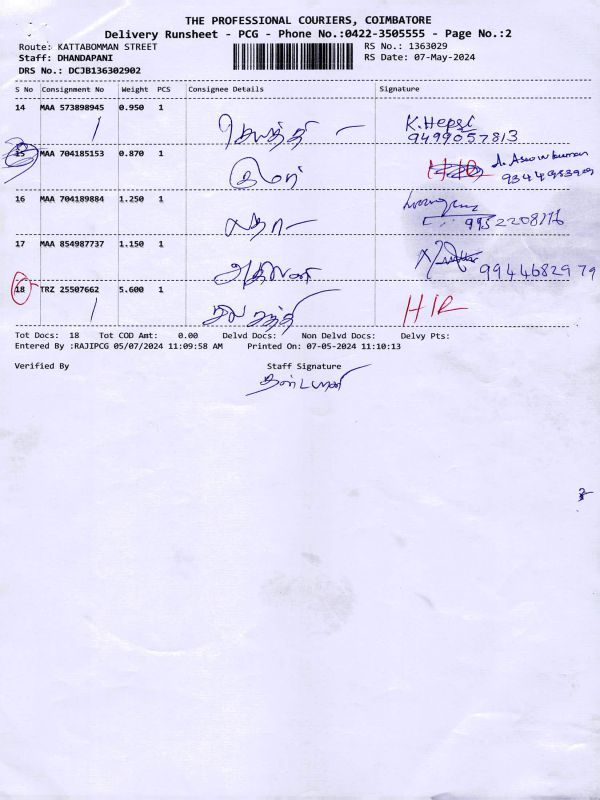 THE PROFESSIONAL COURIERS, COIMBATORE
Delivery Runsheet - PCG - Phone No.:0422-3505555 - Page No.:2
Route: KATTABOMMAN STREET
RS No.: 1363029
Staff: DHANDAPANI
RS Date: 07-May-2024
DRS No.: DCJB136302902
S No Consignment No Weight PCS Consignee Details Signature
14 MAA 573898945 0.950 1 K.Hepsi
9499057813
15 MAA 704185153 0.870 1
16 MAA 704189884 1.250 1
17 MAA 854987737 1.150 1
9944682979
18 TRZ 25507662 5.600 1
Tot Docs: 18 Tot COD Amt: 0.00 Delvd Docs: Non Delvd Docs: Delvy Pts:
Entered By :RAJIPCG 05/07/2024 11:09:58 AM Printed On: 07-05-2024 11:10:13
Verified By Staff Signature